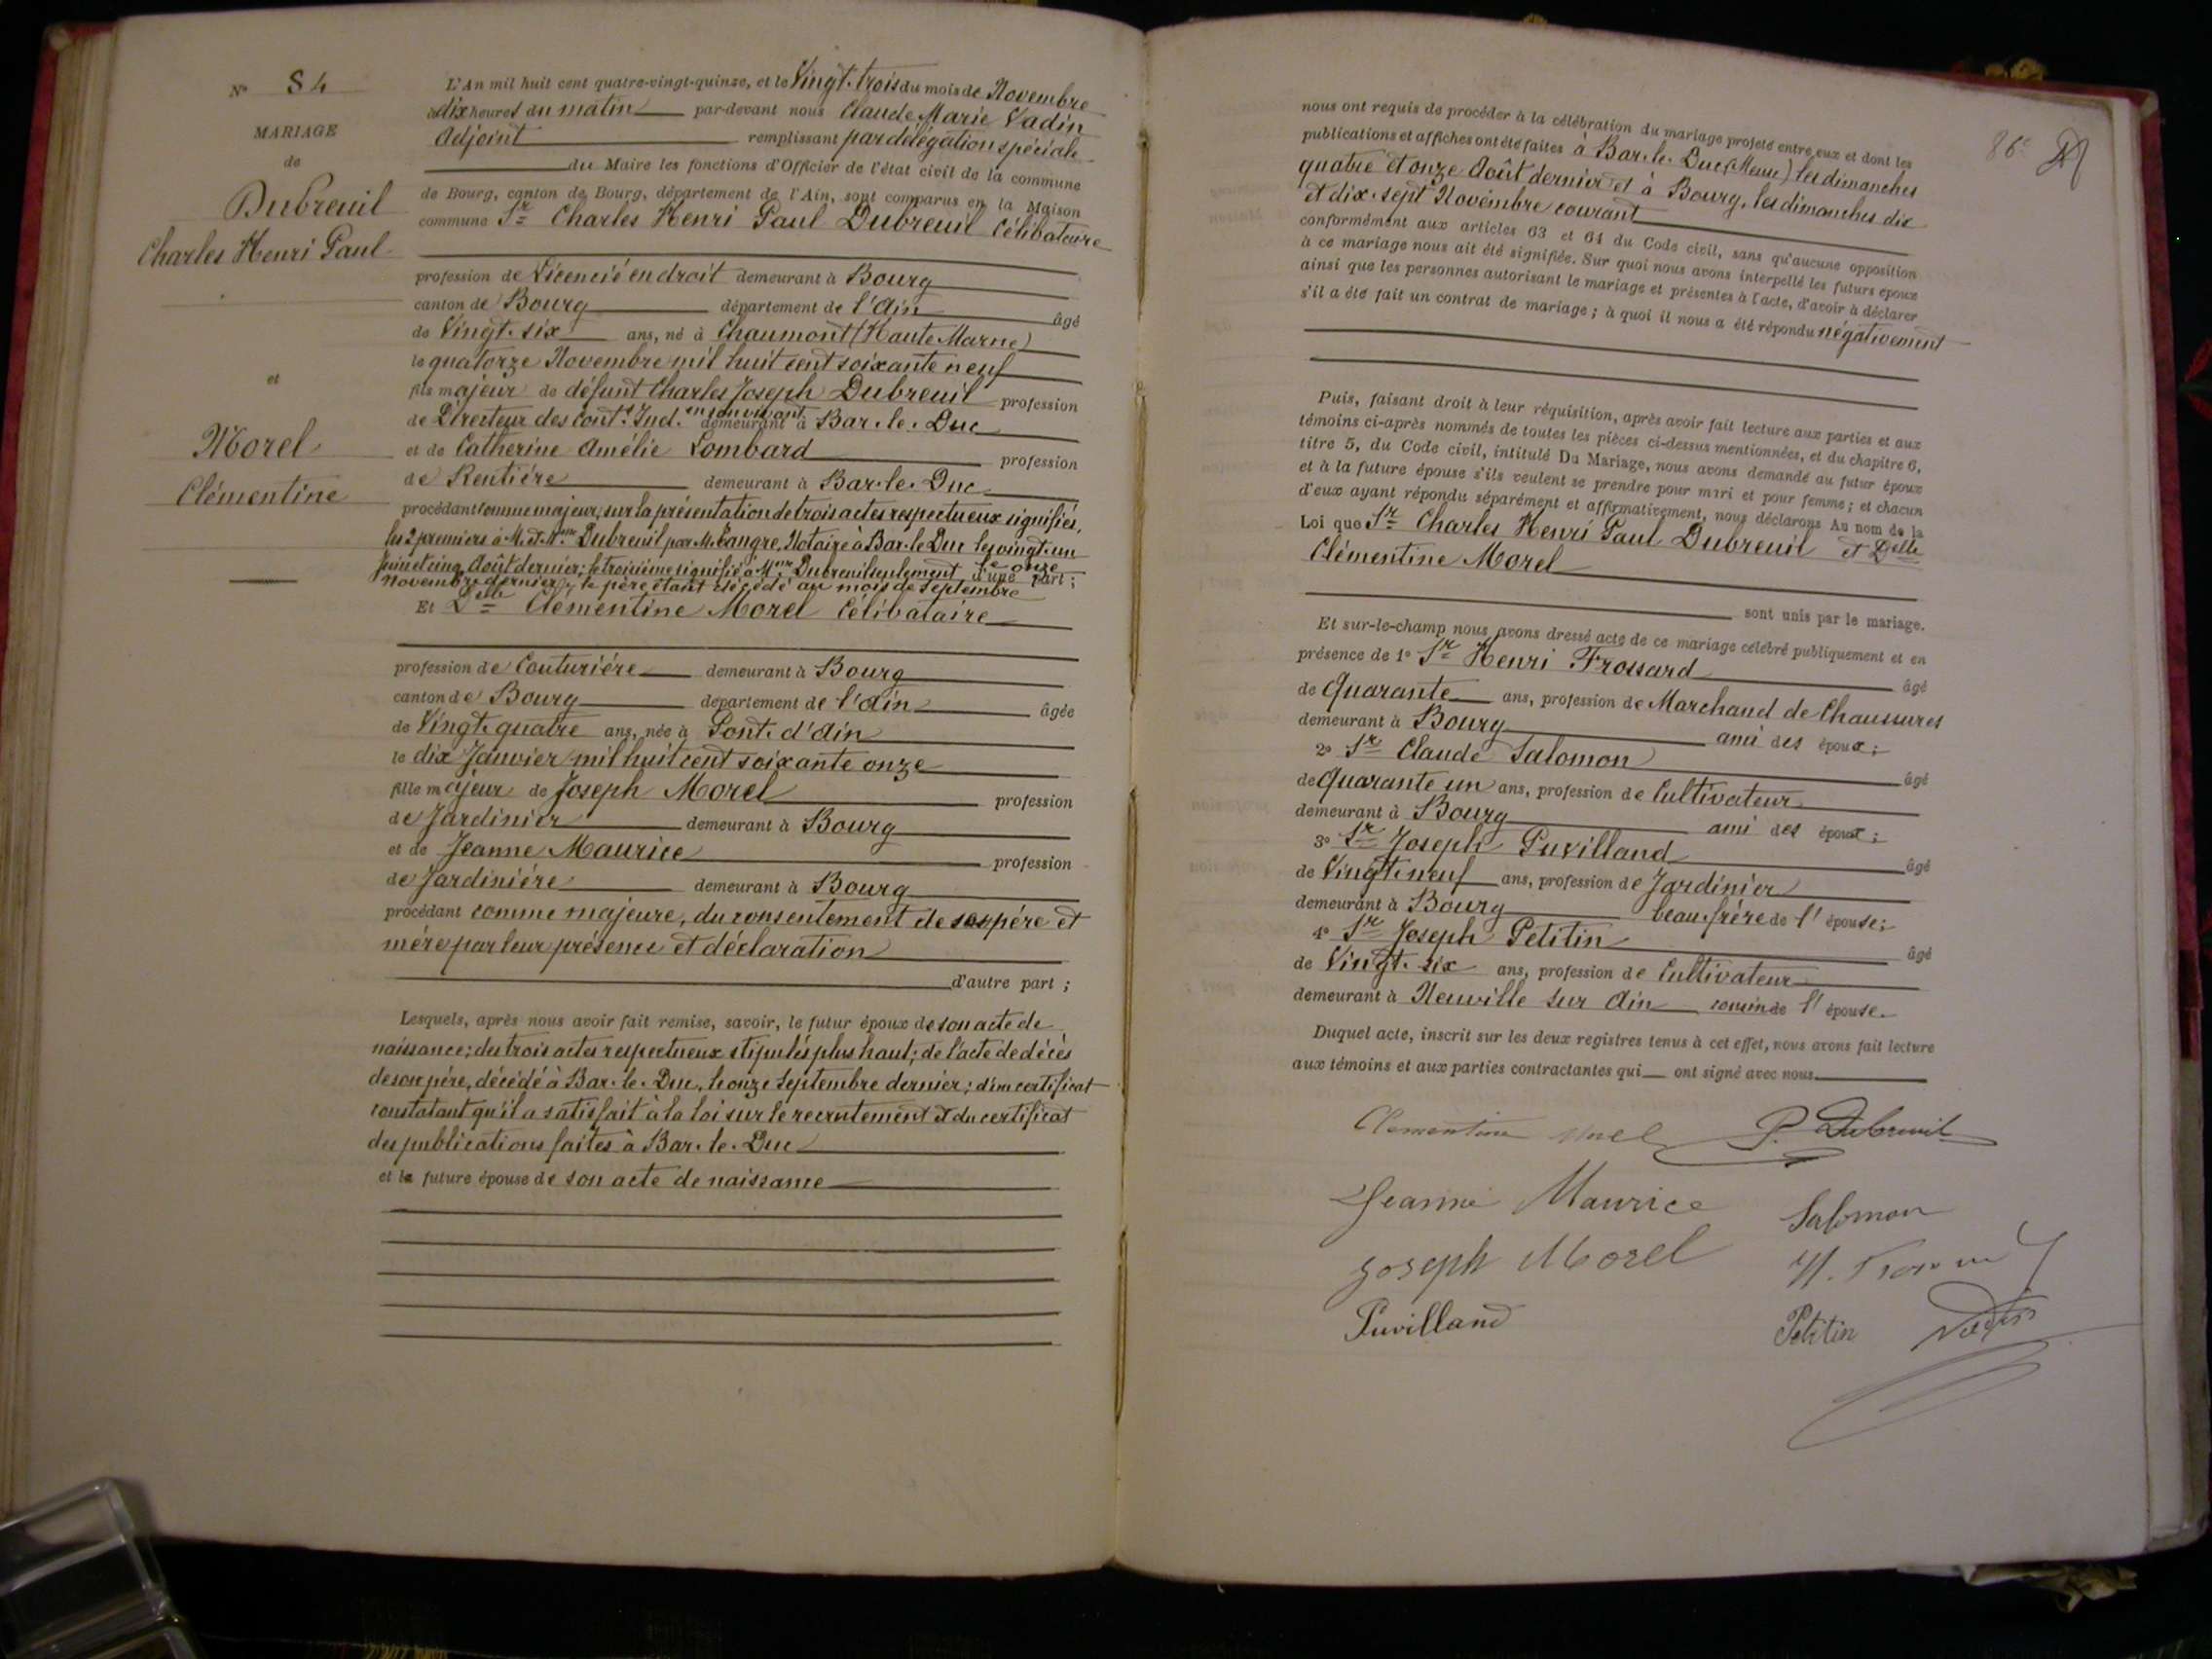 N° 84
MARIAGE
de
Dubreuil
Charles Henri Paul
et
Morel
Clémentine
L'An mil huit cent quatre-vingt-quinze, et le Vingt-trois du mois de Novembre
à dix heures du matin par-devant nous Claude Marie Vadin
Adjoint remplissant par délégation spéciale
du Maire les fonctions d'Officier de l'état civil de la commune
de Bourg, canton de Bourg, département de l'Ain, sont comparus en la Maison
commune Sr Charles Henri Paul Dubreuil Célibataire
profession de Licencié en droit demeurant à Bourg
canton de Bourg département de l'Ain âgé
de Vingt-six ans, né à Chaumont (Haute Marne)
le quatorze Novembre mil huit cent soixante neuf
fils majeur de défunt Charles Joseph Dubreuil profession
de Directeur des Contes Ind. en son vivant demeurant à Bar-le-Duc
et de Catherine Amélie Lombard profession
de Rentière demeurant à Bar-le-Duc
procédant comme majeur, sur la présentation de trois actes respectueux signifiés,
les 2 premiers à M. et Mme Dubreuil par M. Notaire à Bar-le-Duc les vingt-un
Juin et cinq Août dernier; le troisième signifié à Mme Dubreuil seulement le onze d'une part;
Novembre dernier, le père étant décédé au mois de Septembre
Et Delle Clémentine Morel Célibataire
profession de Couturière demeurant à Bourg
canton de Bourg département de l'Ain âgée
de Vingt-quatre ans, née à Pont-d'Ain
le dix Janvier mil huit cent soixante onze
fille majeur de Joseph Morel profession
de Jardinier demeurant à Bourg
et de Jeanne Maurice profession
de Jardinière demeurant à Bourg
procédant comme majeure, du consentement de ses père et
mère par leur présence et déclaration
d'autre part;
Lesquels, après nous avoir fait remise, savoir, le futur époux de son acte de
naissance; des trois actes respectueux stipulés plus haut; de l'acte de décès
de son père, décédé à Bar-le-Duc, le onze Septembre dernier; d'un certificat
constatant qu'il a satisfait à la loi sur le recrutement et du certificat
des publications faites à Bar-le-Duc
et la future épouse de son acte de naissance
86e
nous ont requis de procéder à la célébration du mariage projeté entre eux et dont les
publications et affiches ont été faites à Bar-le-Duc (Meuse) les dimanches
quatre et onze Août dernier et à Bourg, les dimanches dix
et dix-sept Novembre courant
conformément aux articles 63 et 64 du Code civil, sans qu'aucune opposition
à ce mariage nous ait été signifiée. Sur quoi nous avons interpellé les futurs époux
ainsi que les personnes autorisant le mariage et présentes à l'acte, d'avoir à déclarer
s'il a été fait un contrat de mariage; à quoi il nous a été répondu négativement
Puis, faisant droit à leur réquisition, après avoir fait lecture aux parties et aux
témoins ci-après nommés de toutes les pièces ci-dessus mentionnées, et du chapitre 6,
titre 5, du Code civil, intitulé Du Mariage, nous avons demandé au futur époux
et à la future épouse s'ils veulent se prendre pour mari et pour femme; et chacun
d'eux ayant répondu séparément et affirmativement, nous déclarons Au nom de la
Loi que Sr Charles Henri Paul Dubreuil et Delle
Clémentine Morel
sont unis par le mariage.
Et sur-le-champ nous avons dressé acte de ce mariage célébré publiquement et en
présence de 1° Sr Henri Frossard âgé
de Quarante ans, profession de Marchand de Chaussures
demeurant à Bourg ami des époux;
2° Sr Claude Salomon âgé
de Quarante un ans, profession de Cultivateur
demeurant à Bourg ami des époux;
3° Sr Joseph Puvilland âgé
de Vingt-neuf ans, profession de Jardinier
demeurant à Bourg beau-frère de l'épouse;
4° Sr Joseph Petitin âgé
de Vingt-six ans, profession de Cultivateur
demeurant à Neuville sur Ain cousin de l'épouse.
Duquel acte, inscrit sur les deux registres tenus à cet effet, nous avons fait lecture
aux témoins et aux parties contractantes qui ont signé avec nous
Clementine Morel P. Dubreuil
Jeanne Maurice Salomon
Joseph Morel H. Frossard
Puvilland Petitin Vadin